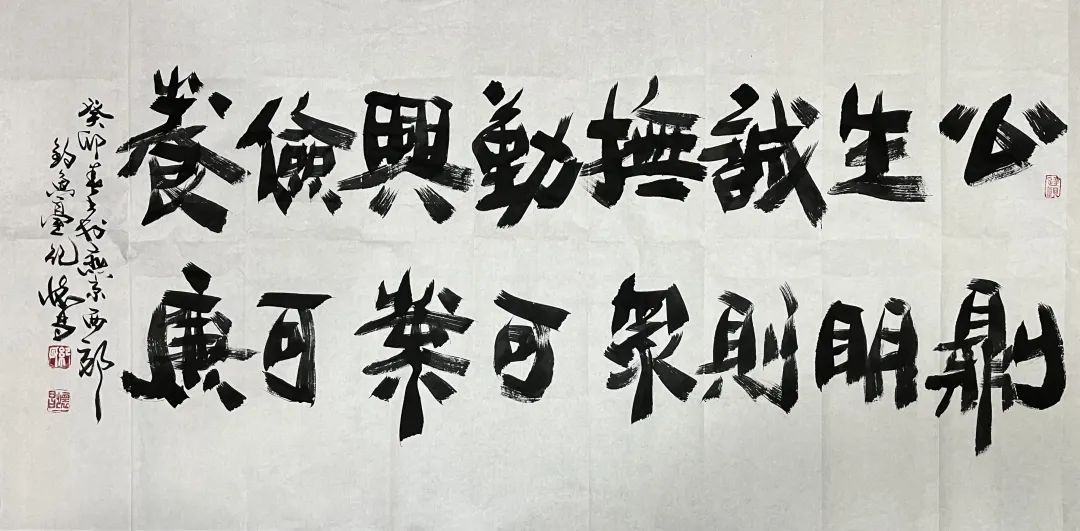 公則
生明
誠則
撫眾
勤可
興業
儉可
養廉
癸卯春於燕京西郊
釣魚臺紀懷昌